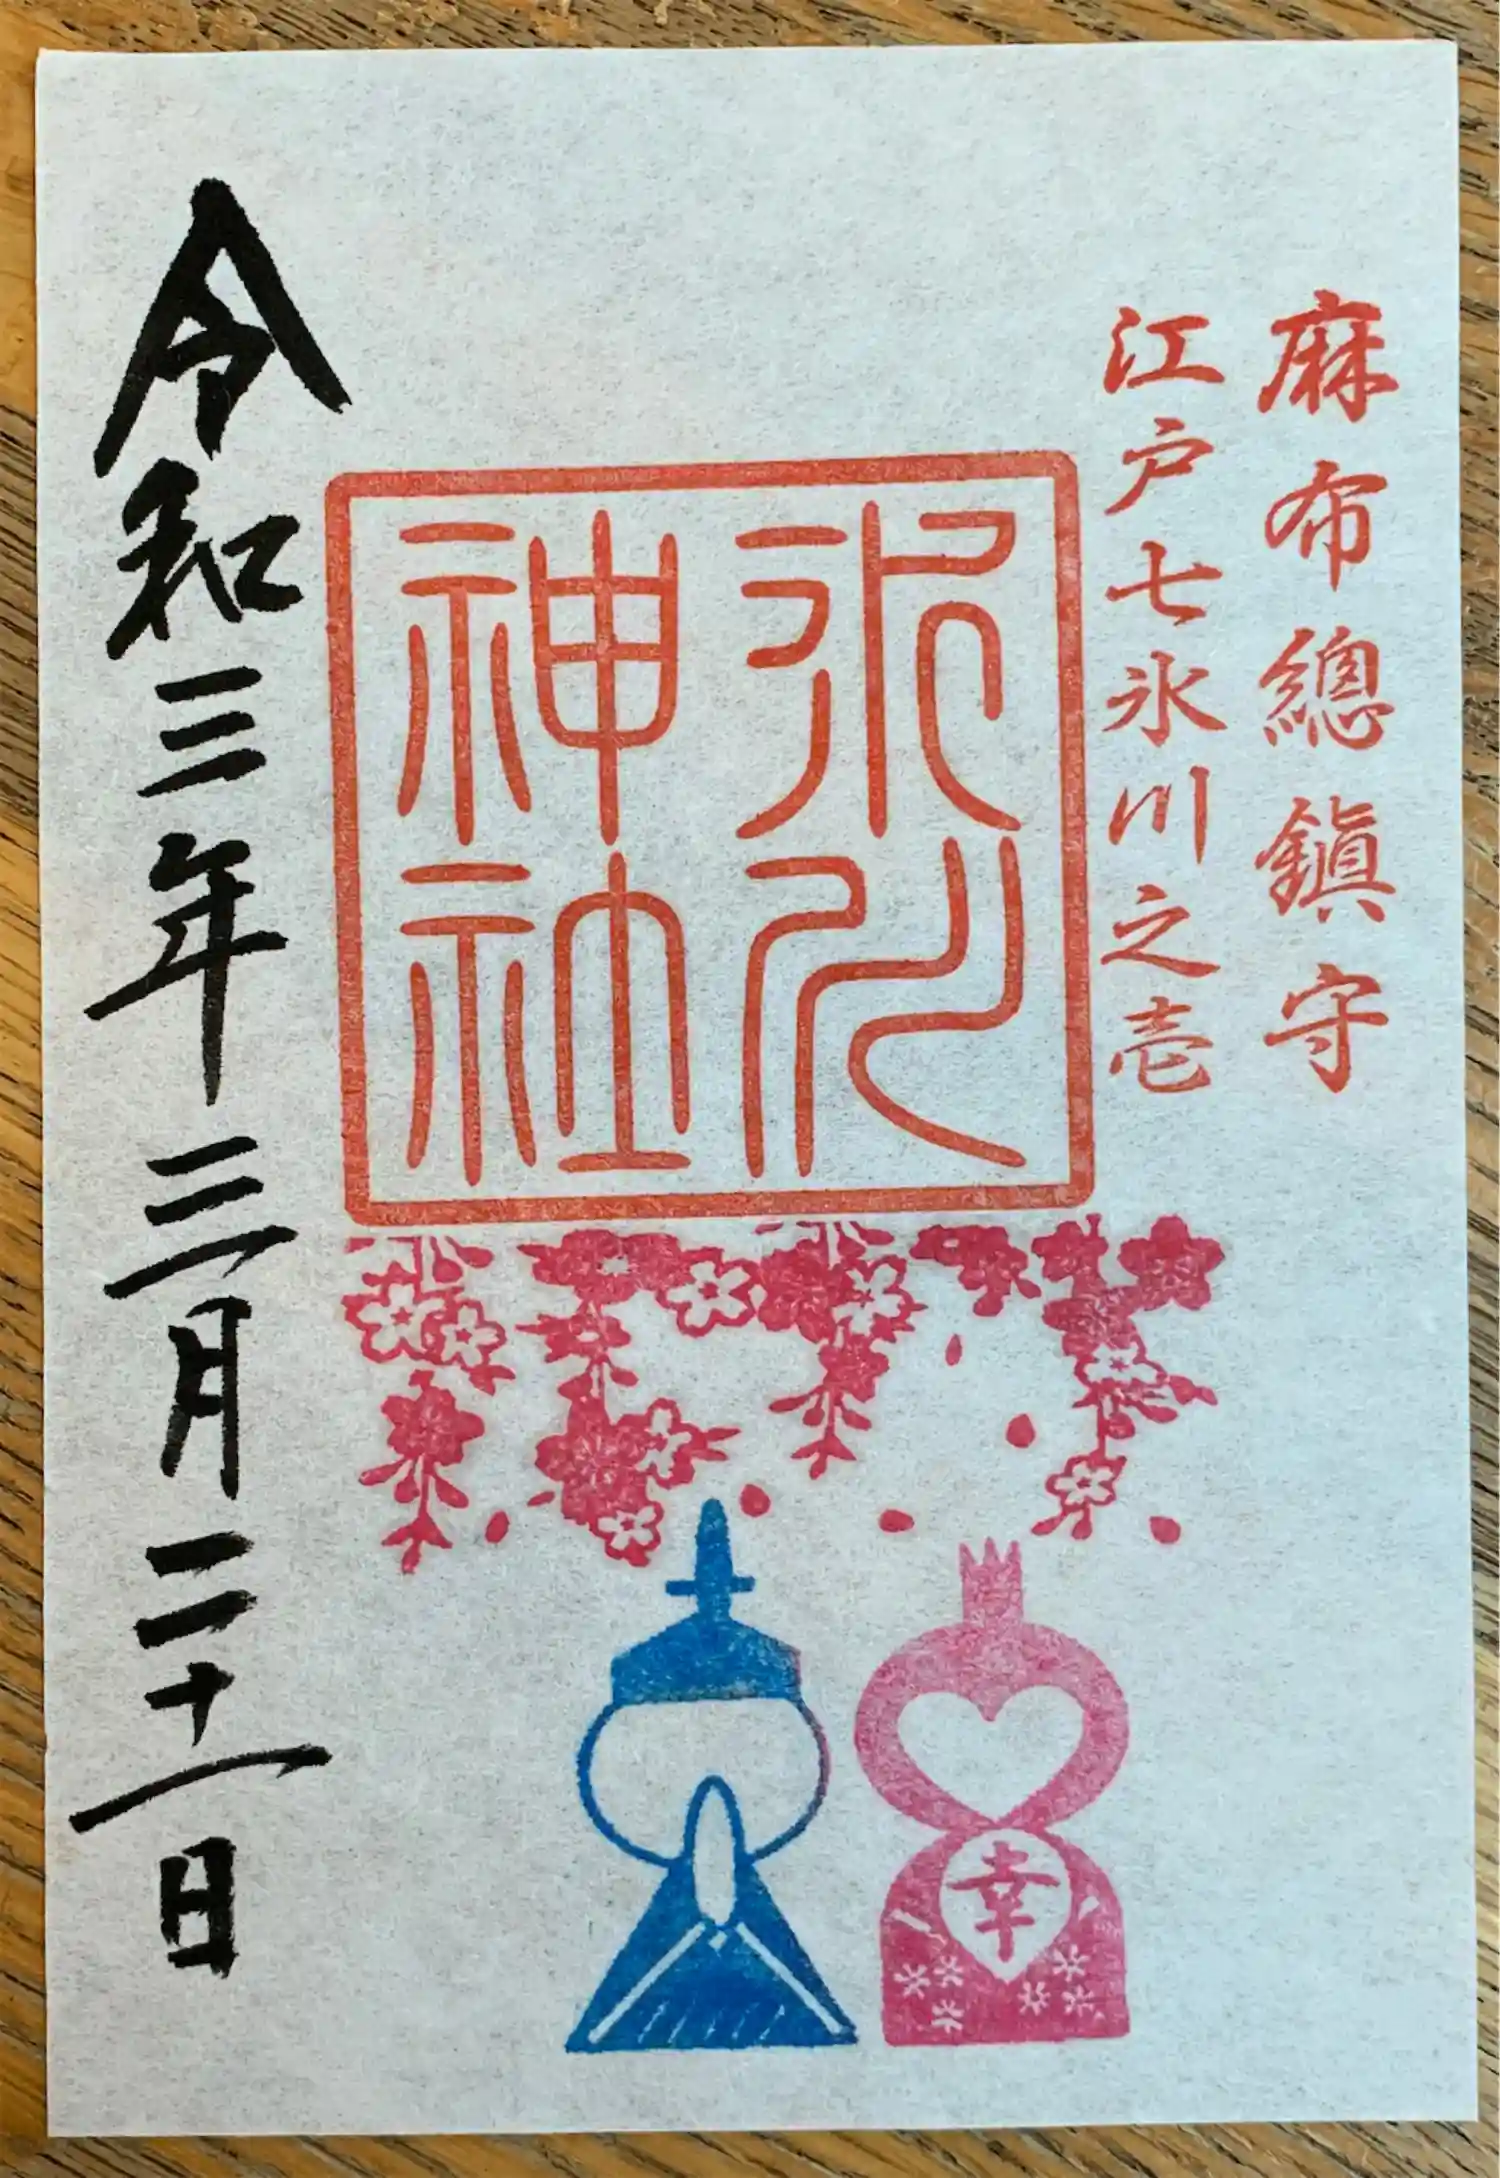 麻布總鎭守
江戸七氷川之壱
氷川
神社
幸
令和三年三月二十一日